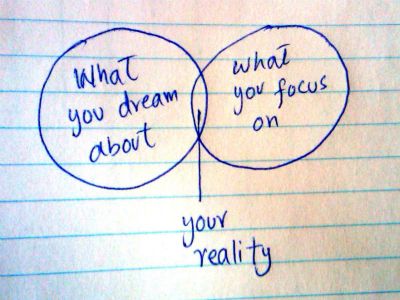 What
you dream
about
what
you focus
on
your
reality